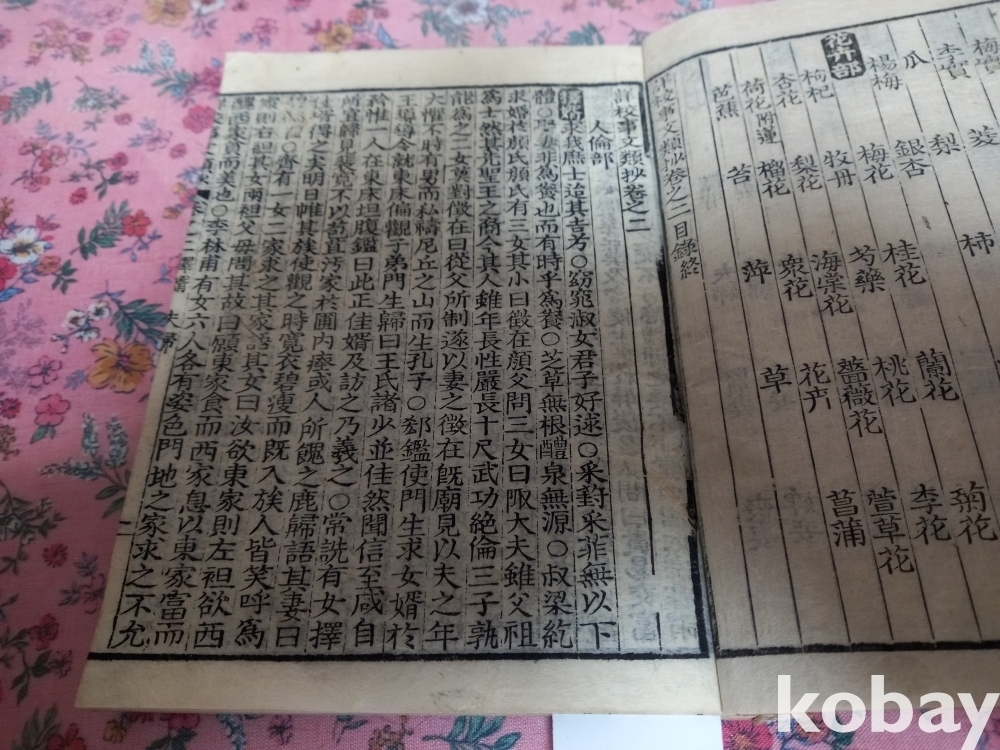 梅實
李實 菱
瓜 梨 柿
楊梅 銀杏
花卉部 梅花 桂花 蘭花 菊花
牧丹 芍藥 桃花 李花
杏花 梨花 海棠花 薔薇花 萱草花
荷花附蓮 榴花 衆花 花卉 菖蒲
芭蕉 苔 萍 草
校事文類抄卷之二目錄終
詳校事文類抄卷之二
人倫部
求我庶士迨其吉兮○窈窕淑女君子好逑○采葑采菲無以下
體○妻非爲養也而有時乎爲養○芝草無根醴泉無源○叔梁紇
求婚於顔氏顔氏有三女其小曰徵在顔父問三女曰陬大夫雖父祖
爲士然其先聖王之裔今其人雖年長性嚴長十尺武功絶倫三子孰
能爲之二女莫對徵在曰從父所制遂以妻之徵在旣廟見以夫之年
大懼不時有男而私禱尼丘之山而生孔子○郄鑑使門生求女婿於
王導導令就東床偏觀子弟門生歸曰王氏諸少並佳然聞信至咸自
矜惟一人在東床坦腹鑑曰此正佳婿及訪之乃羲之○常詵有女擇
所宜歸見裴寬不以苞苴汚家於圃內瘞或人所餽之鹿歸語其妻曰
婿得之矣明日帷其族使觀之時寬衣碧瘦而旣入族人皆笑呼爲
○齊有一女二家求之其家語其女曰汝欲東家則左袒欲西
家則右袒其女兩袒父母問其故曰願東家食而西家息以東家富而
西家貧而美也○李林甫有女六人各有姿色門地之家求之不允